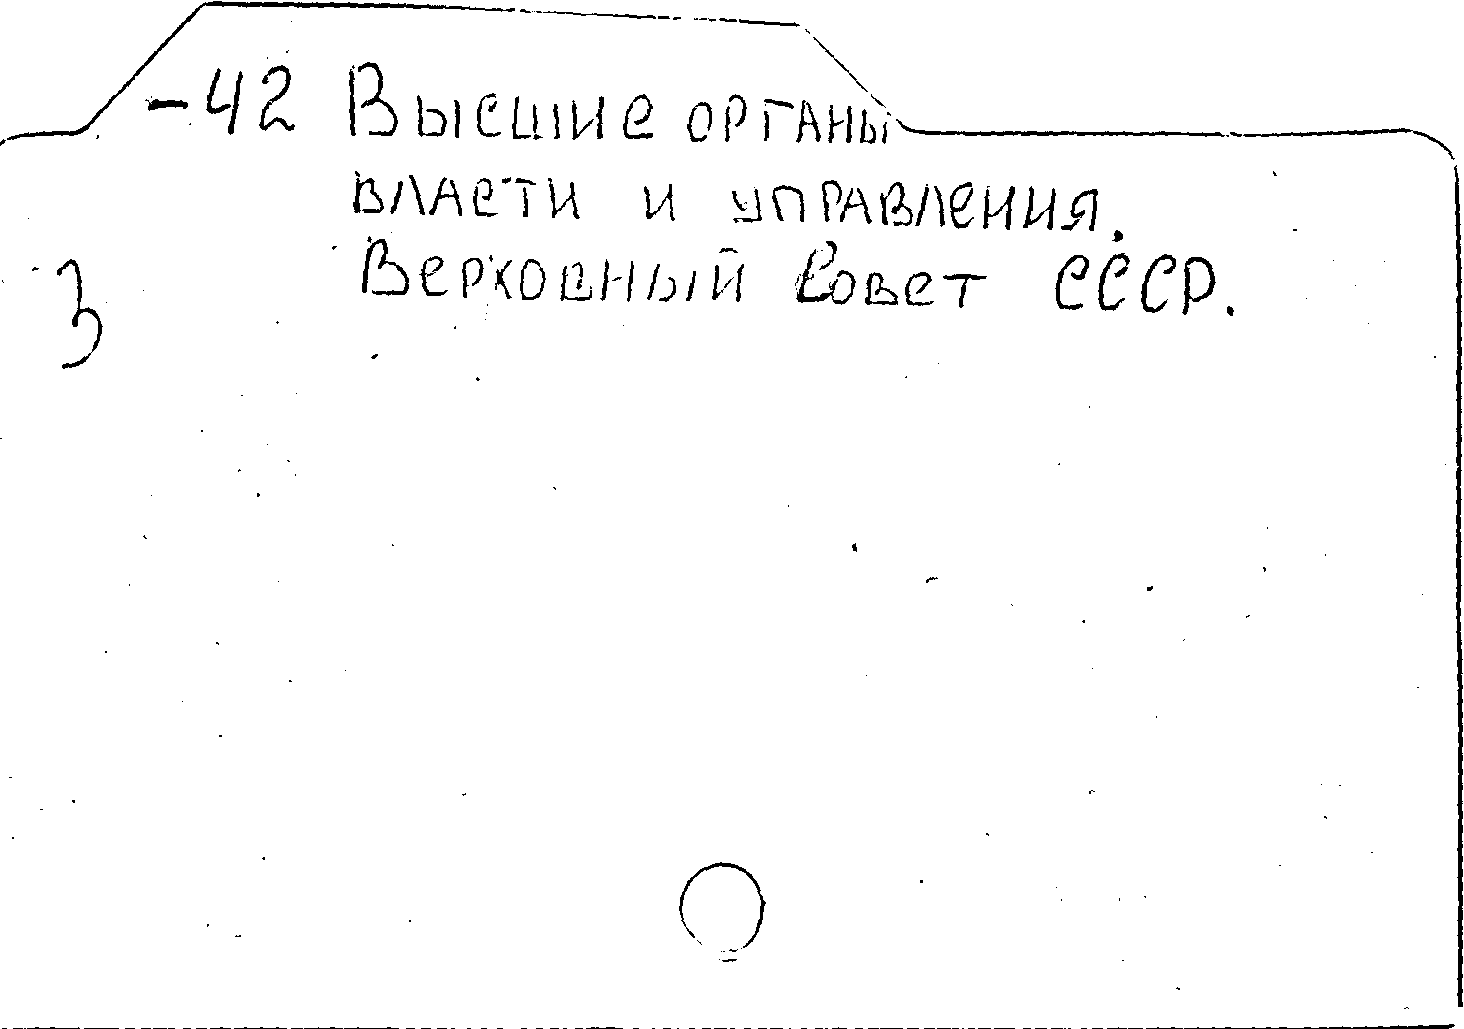 -42 Высшие органы
власти и управления.
3 Верховный Совет СССР.